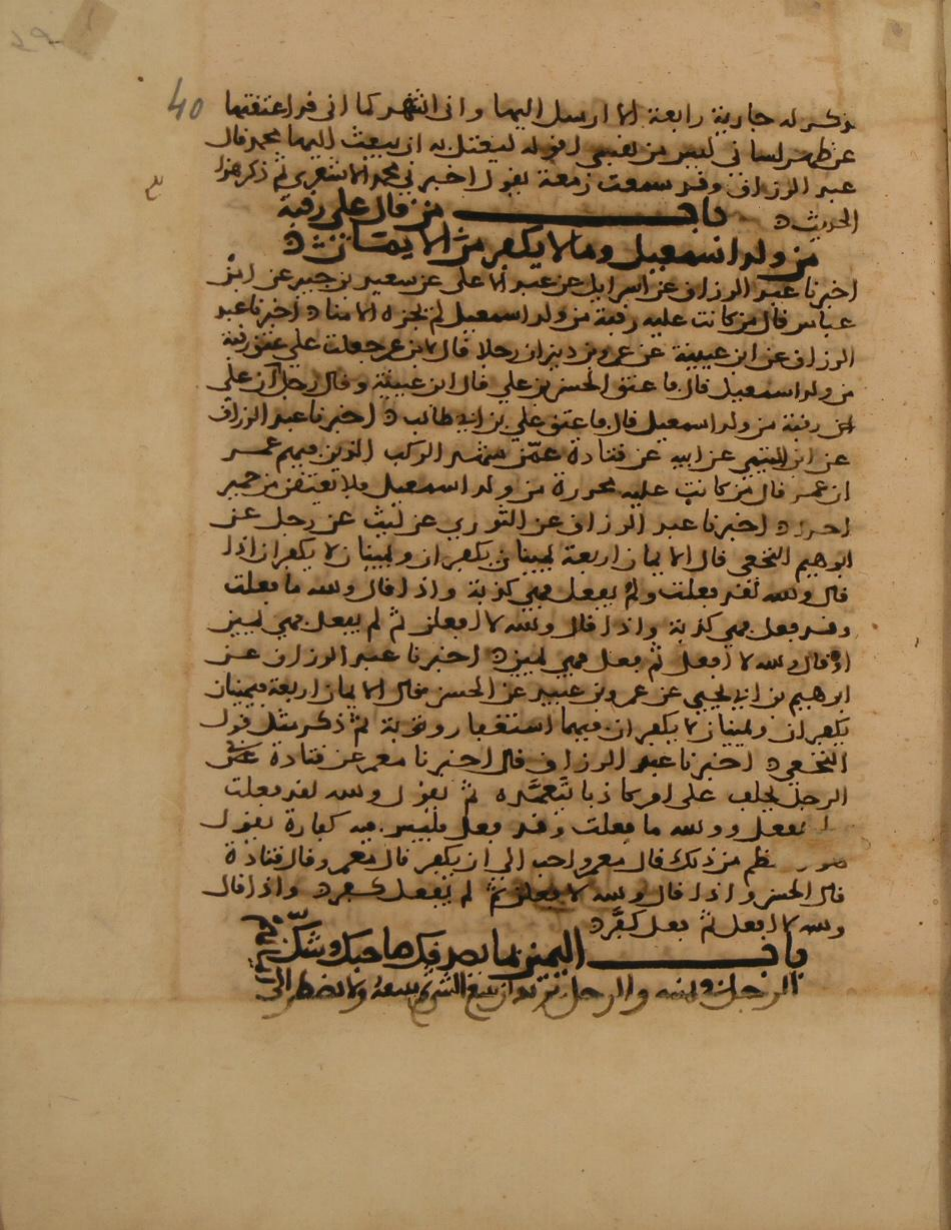 40
يذكر له جارية رابعة الا ارسل اليها واني اشهدكما اني قد اعتقتها
عن ظهر لساني ليس من نفسي لقوله ليعتل به ان يبعث اليها محمد قال
عبد الرزاق وقد سمعت زمعة يقول اخبرني محمد الاشعري ثم ذكر هذا
الحديث
باب من قال علي رقبة
من ولد اسمعيل وما لا يكفر من الايمان
اخبرنا عبد الرزاق عن اسرايل عن عبد الاعلى عن سعيد بن جبير عن ابن
عباس قال من كانت عليه رقبة من ولد اسمعيل لم تجزه الا منا اخبرنا عبد
الرزاق عن ابن عيينة عن عمرو بن دينار ان رجلا قال لابن عمر جعلت علي عتق رقبة
من ولد اسمعيل قال فاعتق الحسن بن علي قال ابن عيينة وقال رجل آخر علي
رقبة من ولد اسمعيل قال فاعتق علي بن ابي طالب اخبرنا عبد الرزاق
عن ابن التيمي عن ابيه عن قتادة عمن شهد الركب الذين فيهم عمر
ان عمر قال من كانت عليه محررة من ولد اسمعيل فلا يعتقن من حمير
احدا اخبرنا عبد الرزاق عن الثوري عن ليث عن رجل عن
ابرهيم النخعي قال الايمان اربعة يمينان يكفران ويمينان لا يكفران اذا
قال والله لقد فعلت ولم يفعل فهي كذبة واذا قال والله ما فعلت
وقد فعل فهي كذبة واذا قال والله لافعلن ثم لم يفعل فهي يمين
او قال والله لا افعل ثم فعل فهي يمين اخبرنا عبد الرزاق عن
ابرهيم بن ابي يحيى عن عمرو بن عبيد عن الحسن قال الايمان اربعة فيمينان
يكفران ويمينان لا يكفران فيهما استغفار وتوبة ثم ذكر مثل قول
النخعي اخبرنا عبد الرزاق قال اخبرنا معمر عن قتادة عن
الرجل يحلف على امر كاذبا يتعمده ثم يقول والله لقد فعلت
يفعل ووالله ما فعلت وقد فعل فليس فيه كفارة يقول
هو اعظم من ذلك قال معمر واحب الي ان يكفر قال معمر وقال قتادة
قال الحسن واذا قال والله لافعلن ثم لم يفعل كفر واذا قال
والله لا افعل ثم فعل كفر
باب اليمين بما يصدقك صاحبك وشك
الرجل في يمينه والرجل